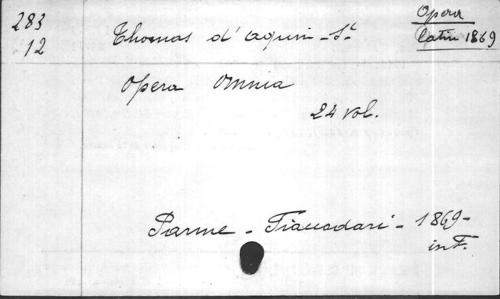 283
12
Thomas d'Aquin - St
Opera
Latin 1869
Opera Omnia
24 vol.
Parme - Fiaccadori - 1869 -
in F.